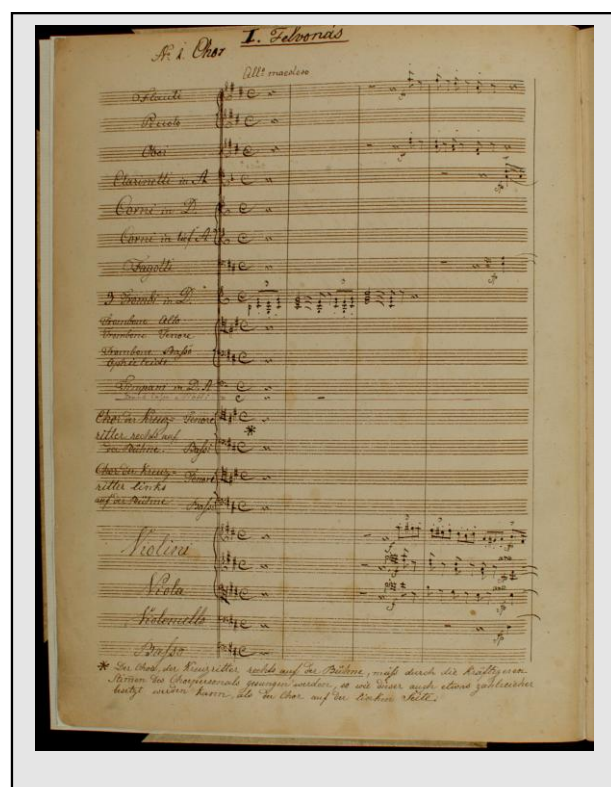 I. Felvonás
No. 1. Chor
All.o maestoso
Flauti
Piccolo
Oboi
Clarinetti in A
Corni in D.
Corni in tief A
Fagotti
3 Trombi in D.
Trombone Alto
Trombone Tenore
Trombone Basso
Ophicleide
Timpani in D. A
Chor der Kreuz- Tenore
ritter rechts auf
der Bühne. Bassi
Chor der Kreuz- Tenore
ritter links
auf der Bühne Bassi
Violini
Viola
Violoncello
Basso
* Der Chor der Kreuzritter rechts auf der Bühne, muß durch die kräftigeren
Stimen des Chorpersonals gesungen werden, so wie dieser auch etwas zahlreicher
besetzt werden kann, als der Chor auf der linken Seite.